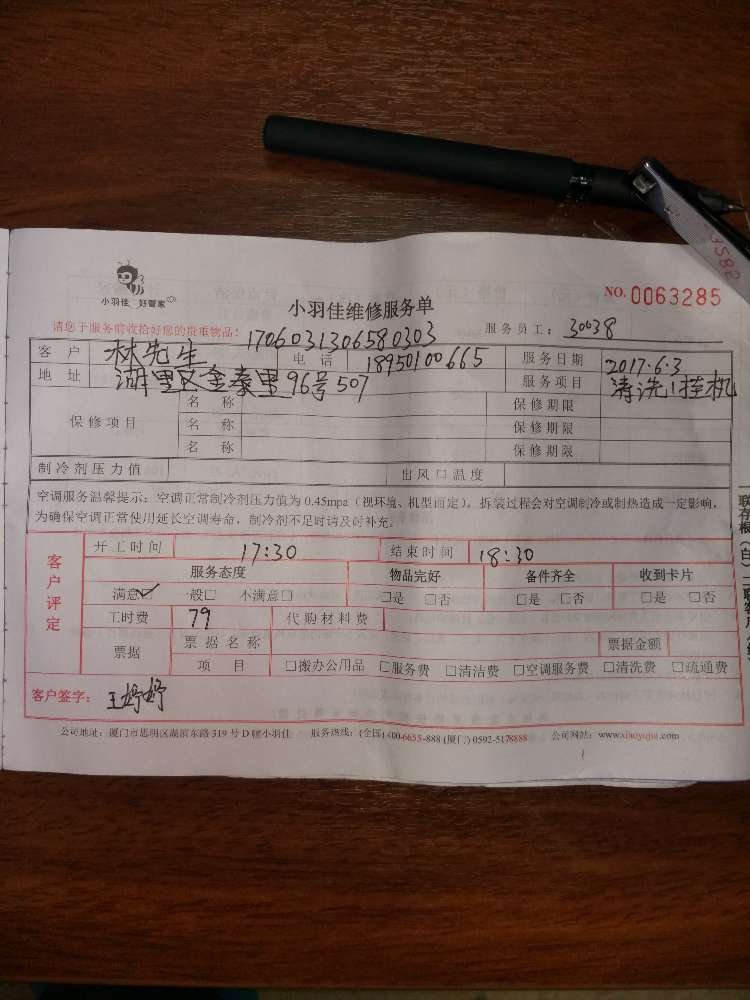 小羽佳 好管家
小羽佳维修服务单
NO. 0063285
请您于服务前收拾好您的贵重物品！
1706031306580303
服务员工： 30038
客户 林先生 电话 18950100665 服务日期 2017.6.3
地址 湖里区金泰里96号507 服务项目 清洗1挂机
保修项目 名称 保修期限
名称 保修期限
名称 保修期限
制冷剂压力值 出风口温度
空调服务温馨提示：空调正常制冷剂压力值为0.45mpa（视环境、机型而定），拆装过程会对空调制冷或制热造成一定影响，
为确保空调正常使用延长空调寿命，制冷剂不足时请及时补充。
客户评定
开工时间 17:30 结束时间 18:30
服务态度 物品完好 备件齐全 收到卡片
满意☑ 一般□ 不满意□ □是 □否 □是 □否 □是 □否
工时费 79 代购材料费
票据 票据名称 票据金额
项目 □搬办公用品 □服务费 □清洁费 □空调服务费 □清洗费 □疏通费
客户签字： 王婷婷
公司地址：厦门市思明区湖滨东路319号D幢小羽佳 服务热线：(全国) 400-6655-888 (厦门) 0592-5178888 公司网站：www.xiaoyujia.com